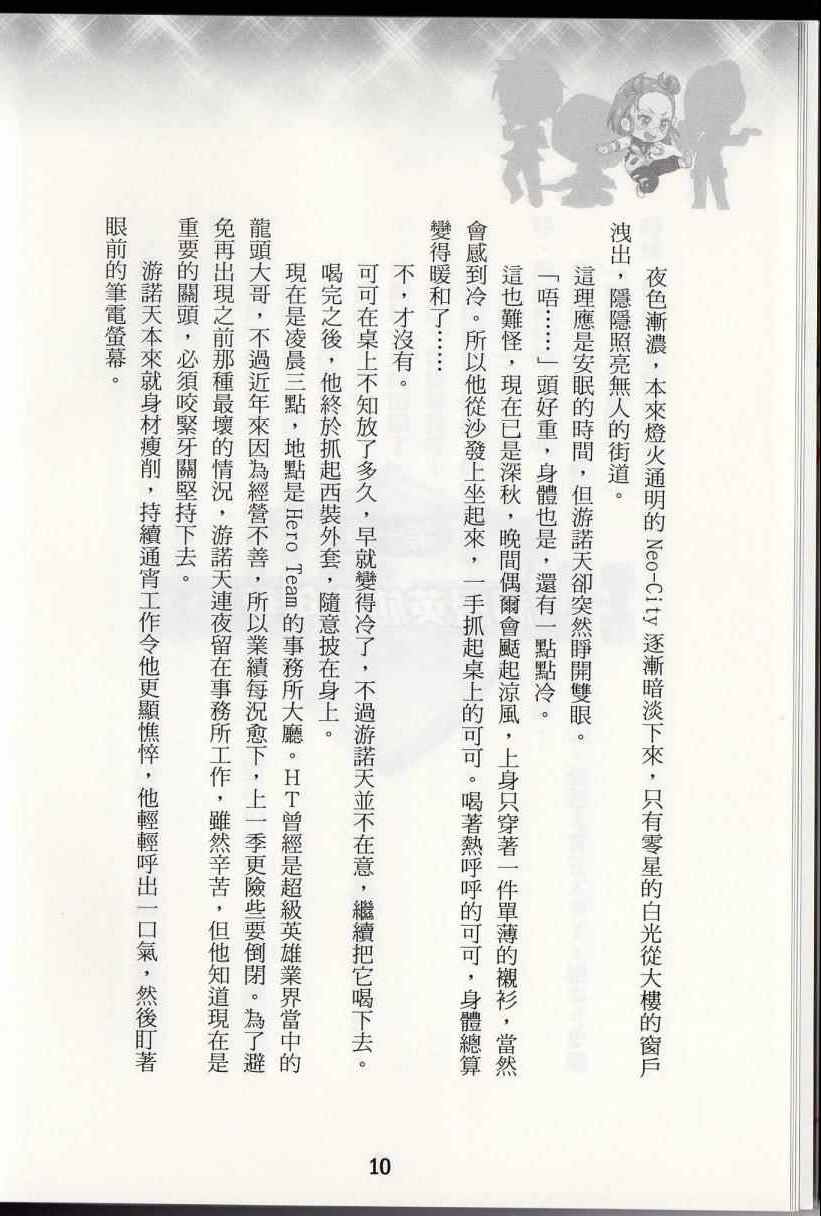 夜色漸濃，本來燈火通明的 Neo-City 逐漸暗淡下來，只有零星的白光從大樓的窗戶
洩出，隱隱照亮無人的街道。
這理應是安眠的時間，但游諾天卻突然睜開雙眼。
「唔……」頭好重，身體也是，還有一點點冷。
這也難怪，現在已是深秋，晚間偶爾會颳起涼風，上身只穿著一件單薄的襯衫，當然
會感到冷。所以他從沙發上坐起來，一手抓起桌上的可可。喝著熱呼呼的可可，身體總算
變得暖和了……
不，才沒有。
可可在桌上不知放了多久，早就變得冷了，不過游諾天並不在意，繼續把它喝下去。
喝完之後，他終於抓起西裝外套，隨意披在身上。
現在是凌晨三點，地點是 Hero Team 的事務所大廳。HT 曾經是超級英雄業界當中的
龍頭大哥，不過近年來因為經營不善，所以業績每況愈下，上一季更險些要倒閉。為了避
免再出現之前那種最壞的情況，游諾天連夜留在事務所工作，雖然辛苦，但他知道現在是
重要的關頭，必須咬緊牙關堅持下去。
游諾天本來就身材瘦削，持續通宵工作令他更顯憔悴，他輕輕呼出一口氣，然後盯著
眼前的筆電螢幕。
10